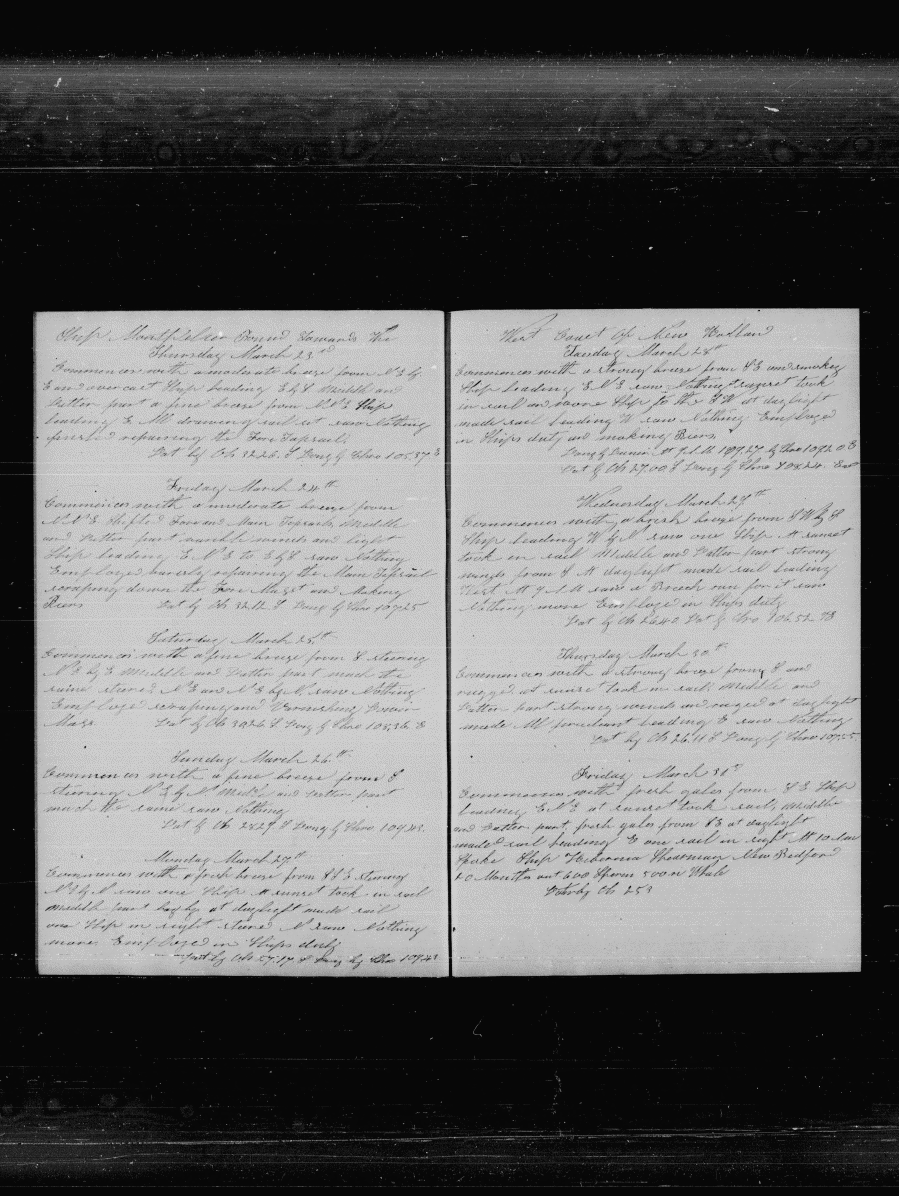 Ship Montpelier Bound Towards the
Thursday March 23rd
Commences with a moderate breeze from N E by
E and overcast Ship heading E by S Middle and
Latter part a fine breeze from N N E Ship
heading E All drawing sail set saw Nothing
finished repairing the Fore Topsail
Lat by Ob 32.26 S Long by Chro 105.37 E
Friday March 24th
Commences with a moderate breeze from
N N E Shifted Fore and Main Topsails Middle
and Latter part variable winds and light
Ship heading E N E to E by S saw Nothing
Employed variously repairing the Main Topsail
scraping down the Fore Mast and Making
Lat by Ob 32.12 S Long by Chro 107.25
Saturday March 25th
Commences with a fine breeze from S steering
N E by E Middle and Latter part much the
same steered N E and N E by N saw Nothing
Employed scraping and Varnishing
Mast Lat by Ob S Long by Chro E
Sunday March 26th
Commences with a fine breeze from S
steering N E by N Middle and Latter part
much the same saw Nothing
Lat by Ob 28.29 S Long by Chro 109.43
Monday March 27th
Commences with a fresh breeze from S S E steering
N E by N saw one Ship At sunset took in sail
Middle part at daylight made sail
one Ship in sight steered N saw Nothing
more Employed in Ships duty
Lat by Ob S Long by Chro 109.43
West Coast Of New Holland
Tuesday March 28th
Commences with a strong breeze from S E and smokey
Ship heading E N E saw Nothing At sunset took
in sail and saw one Ship to the S W at daylight
made sail heading W saw Nothing Employed
in Ships duty and making
Long by Chro 109.20 E
Lat by Ob 27.00 S Long by Chro 108.24 East
Wednesday March 29th
Commences with a fresh breeze from S W by S
Ship heading W by N saw one Ship At sunset
took in sail Middle and Latter part strong
winds from S At daylight made sail heading
West At 9 A M saw a Breach ran for it saw
Nothing more Employed in Ships duty
Lat by Ob 26.40 Lat by Chro 106.52
Thursday March 30th
Commences with a strong breeze from S and
rugged at sunset took in sail Middle and
Latter part strong winds and rugged at daylight
made All sail heading E saw Nothing
Lat by Ob 26.11 S Long by Chro 107.55
Friday March 31st
Commences with fresh gales from S E Ship
heading E N E at sunset took sail Middle
and Latter part fresh gales from S E at daylight
made sail heading E one sail in sight At 10 A M
spoke Ship Hibernia New Bedford
20 Months out 600 Sperm 500 Whale
Lat by Ob 25